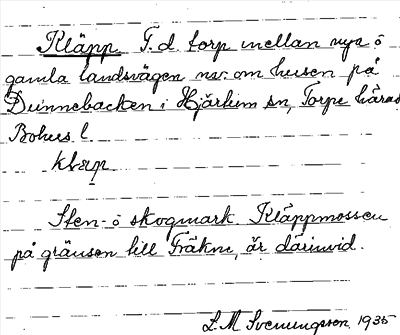 Kläpp. F.d. torp mellan nya o
gamla landsvägen nv. om husen på
Dunnebacken i Hjärtum sn, Torpe härad
Bohus l.
klæp
Sten- o skogmark. Kläppmossen
på gränsen till Fräkne, är därinvid.
L.M Svenungsson 1935